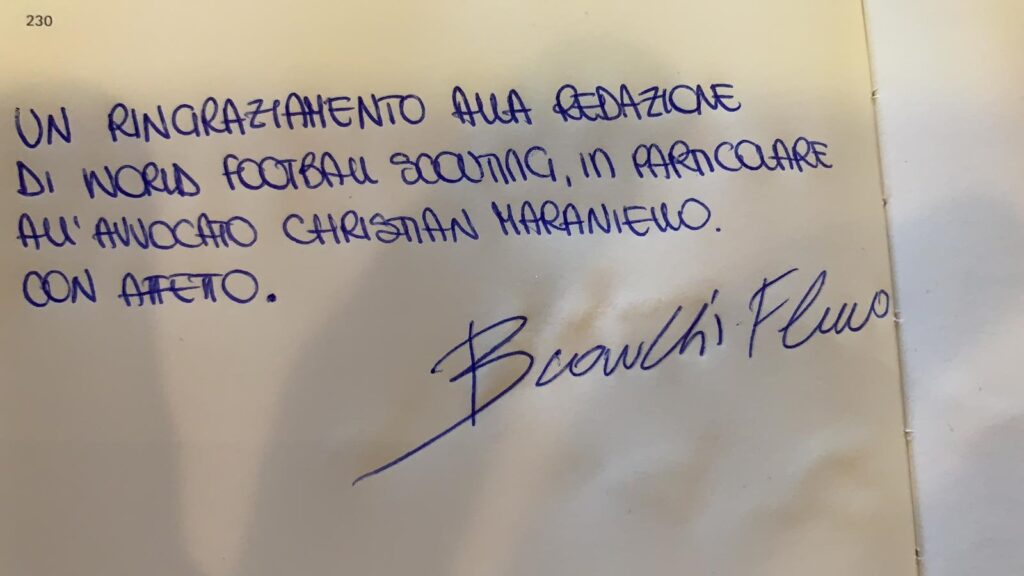 230
UN RINGRAZIAMENTO ALLA REDAZIONE
DI WORLD FOOTBALL SCOUTING, IN PARTICOLARE
ALL'AVVOCATO CHRISTIAN MARANIELLO.
CON AFFETTO.
Bianchi